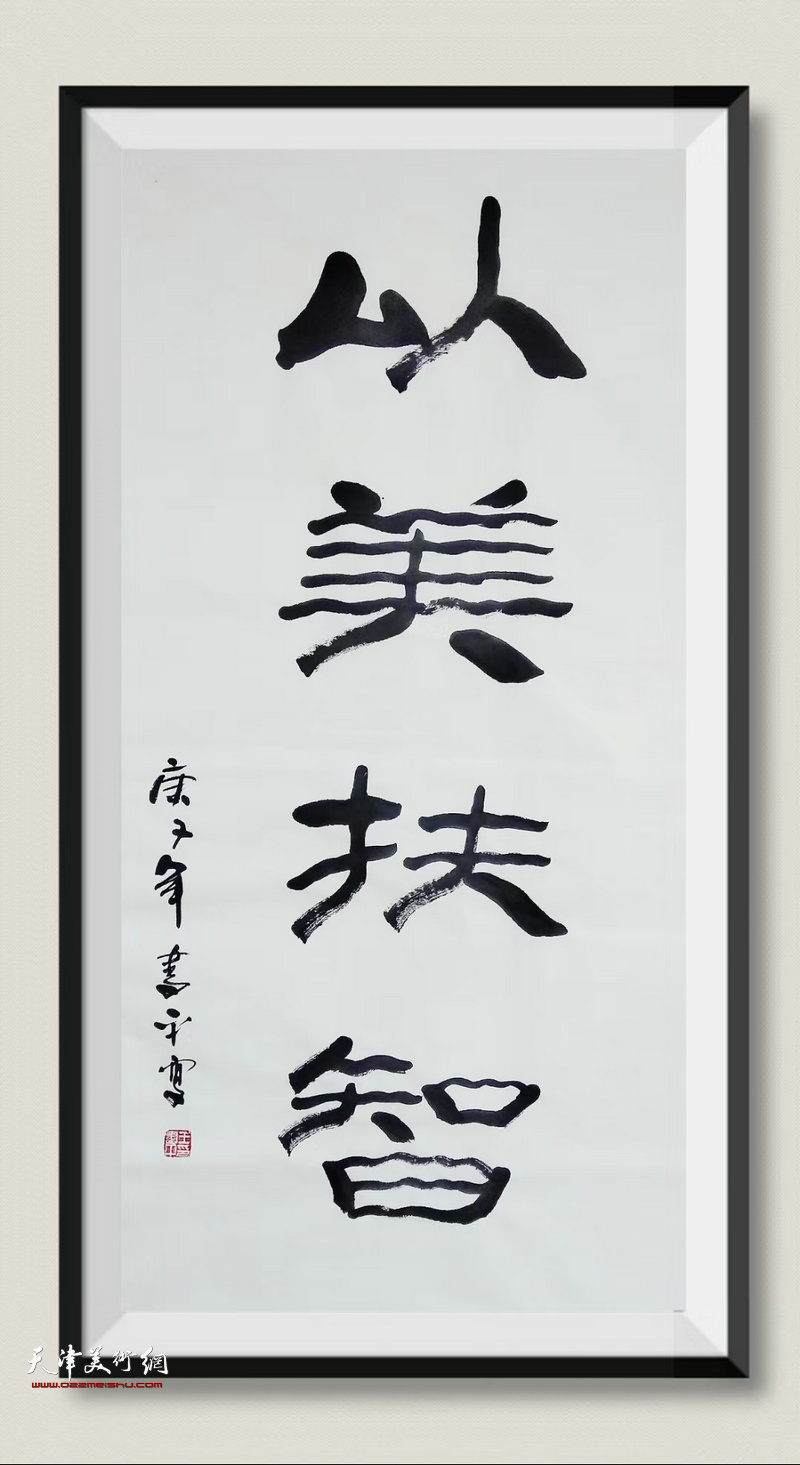 以美扶智
庚子年書平寫
天津美術網
www.022meishu.com